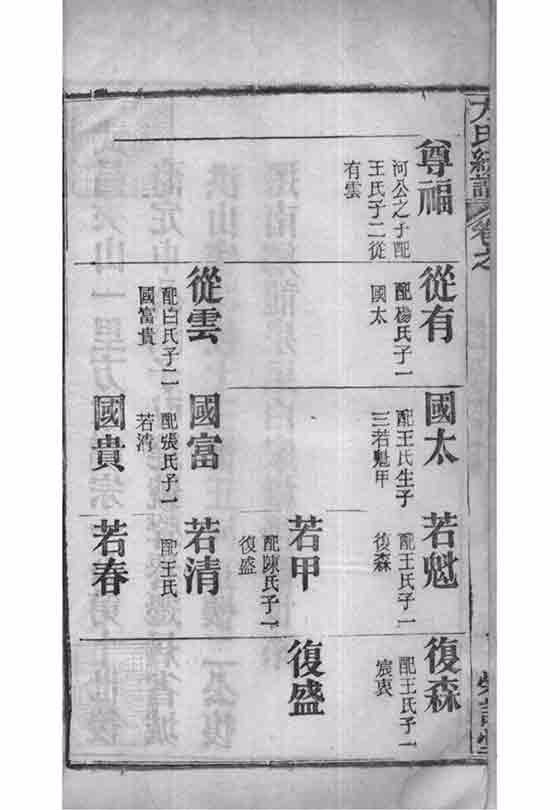 尊福
河公之子配
王氏子二從
有雲
從有
配楊氏子一
國太
從雲
配白氏子二
國富貴
國太
配王氏生子
三若魁甲
國富
配張氏子一
若清
國貴
若魁
配王氏子一
復森
若甲
配陳氏子一
復盛
若清
配王氏
若春
復森
配王氏子一
宸衷
復盛